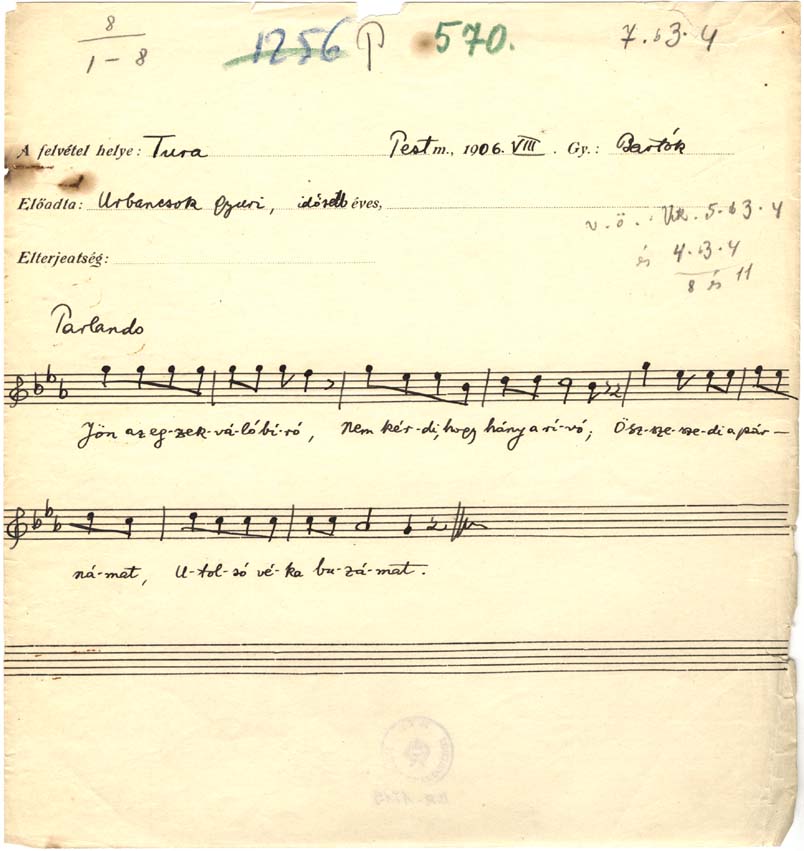 8
1 – 8
1256 P 570.
7.b3.4
A felvétel helye: Tura Pest m., 1906. VIII. Gy.: Bartók
Előadta: Urbancsok Gyuri, idősebb éves,
v.ö.: 5.b3.4
Elterjedtség:
és 4.b3.4
8 és 11
Parlando
Jön az eg-zek-vá-ló bí-ró, Nem kér-di, hogy hány a rí-vó; Ösz-sze-sze-di a pár-
ná-mat, U-tol-só vé-ka bu-zá-mat.